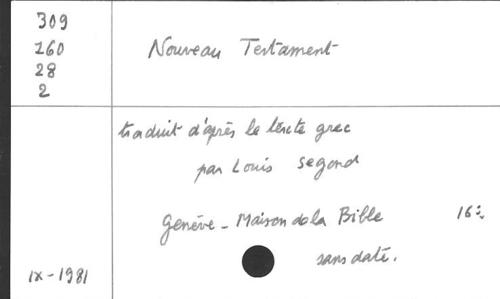 309
160
28
2
Nouveau Testament
traduit d'après le texte grec
par Louis Segond
Genève - Maison de la Bible 16º
sans date.
IX-1981